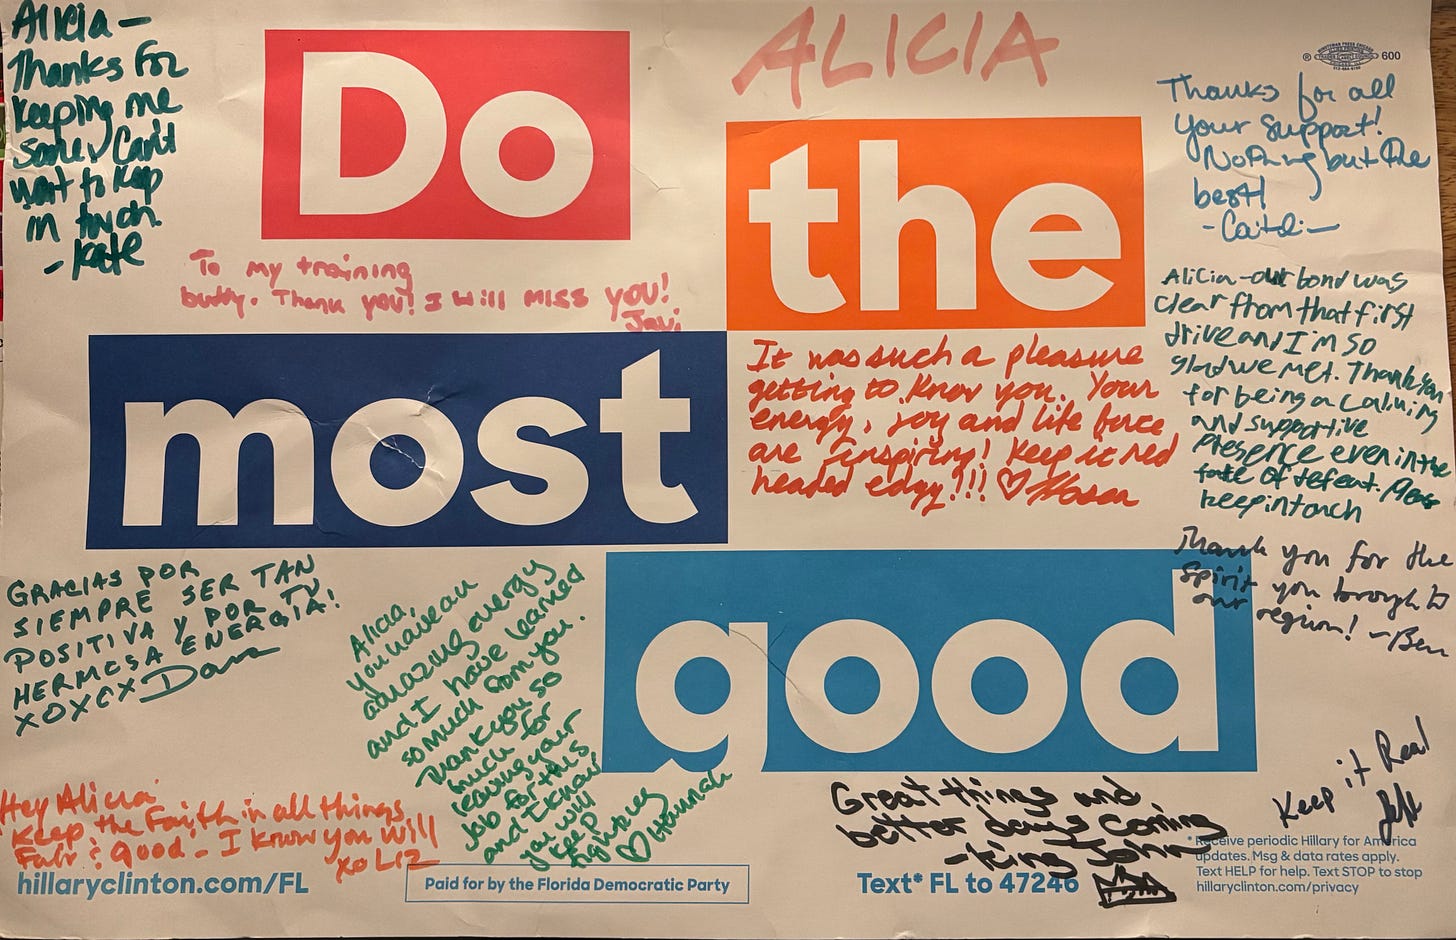 Alicia –
Thanks for
keeping me
sane! Can't
wait to keep
in touch.
- Kate
Do
ALICIA
the
® 600
Thanks for all
your support!
Nothing but the
best!
-Caitlin
To my training
buddy. Thank you! I will miss you!
Javi
most
It was such a pleasure
getting to know you. Your
energy, joy and life force
are inspiring! Keep it red
headed edgy!!! ♡
Alicia – our bond was
clear from that first
drive and I'm so
glad we met. Thank you
for being a calming
and supportive
presence even in the
face of defeat. Please
keep in touch
Thank you for the
spirit you brough to
our region! - Ben
GRACIAS POR
SIEMPRE SER TAN
POSITIVA Y POR TU
HERMOSA ENERGIA!
XOXOX
Alicia,
you have an
amazing energy
and I have learned
so much from you.
Thank you so
much for
leaving your
job for this
and I know
you will
keep
fighting
♡ Hannah
good
Hey Alicia
Keep the Faith in all things
Fair & Good - I know you will
xo Liz
Great things and
better days coming
- King John
Keep it Real
Jeff
hillaryclinton.com/FL
Paid for by the Florida Democratic Party
Text* FL to 47246
* Receive periodic Hillary for America
updates. Msg & data rates apply.
Text HELP for help. Text STOP to stop
hillaryclinton.com/privacy